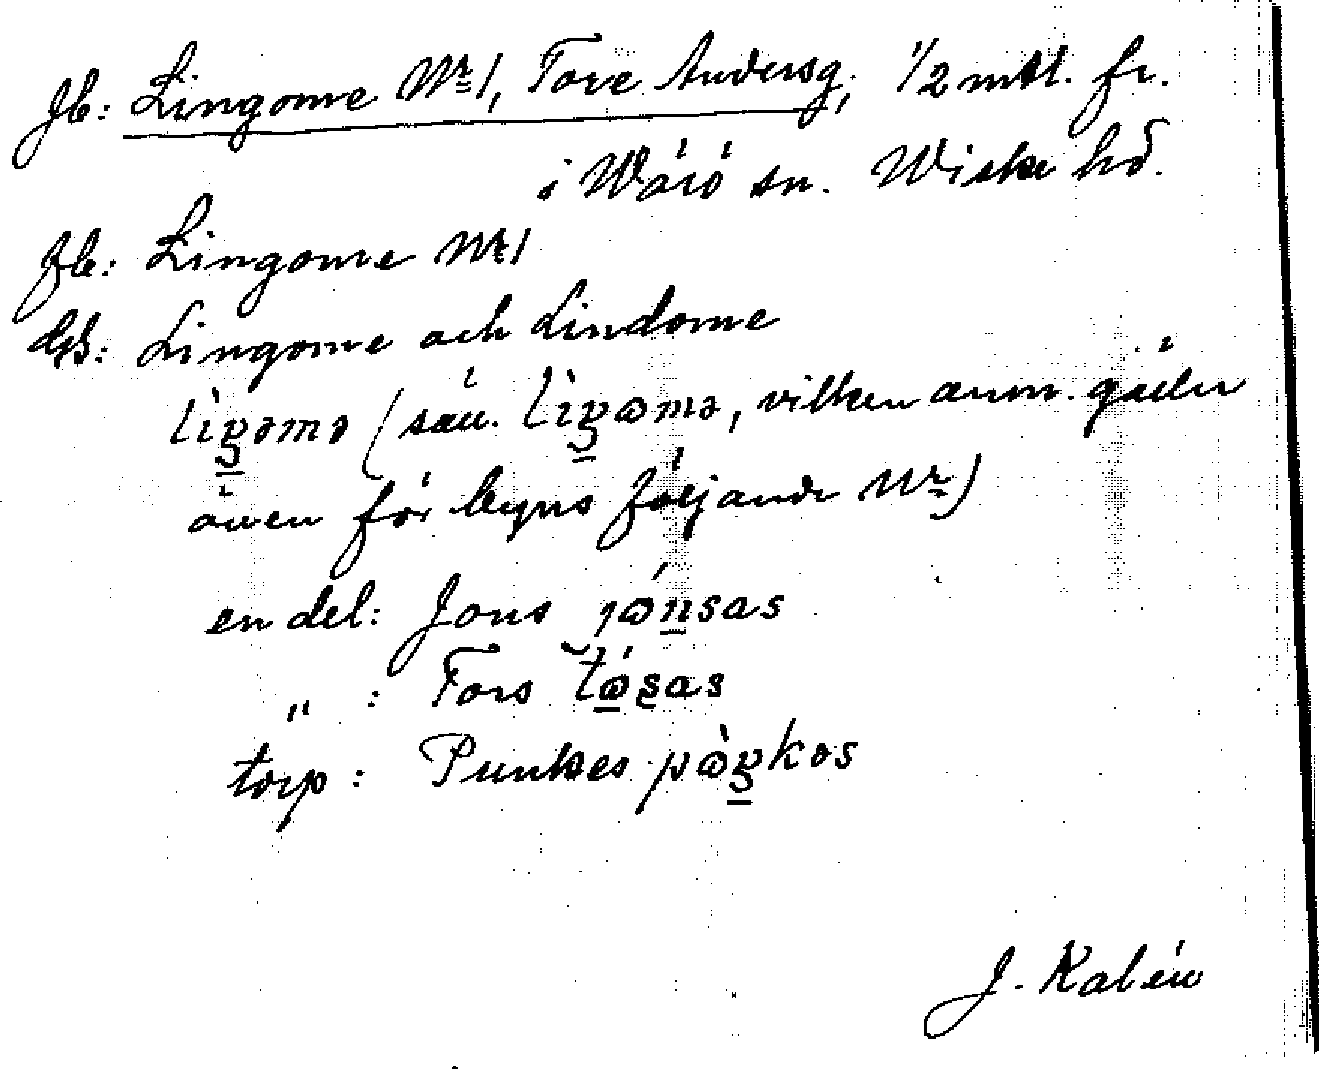 Jb: Lingome Nr 1, Tore Andersg., 1/2 mtl. fr.
i Wärö sn. Wiske hd.
Jb: Lingome Nr 1
GS: Lingome och Lindome
lìŋəmə (säll. lìŋɷmə, vilken anm. gäller
även för byns följande Nr)
en del: Jons jɷ́nsas
„ : Tors tɷ́sas
torp: Punkes pɷ̀ŋkəs
J. Kalén